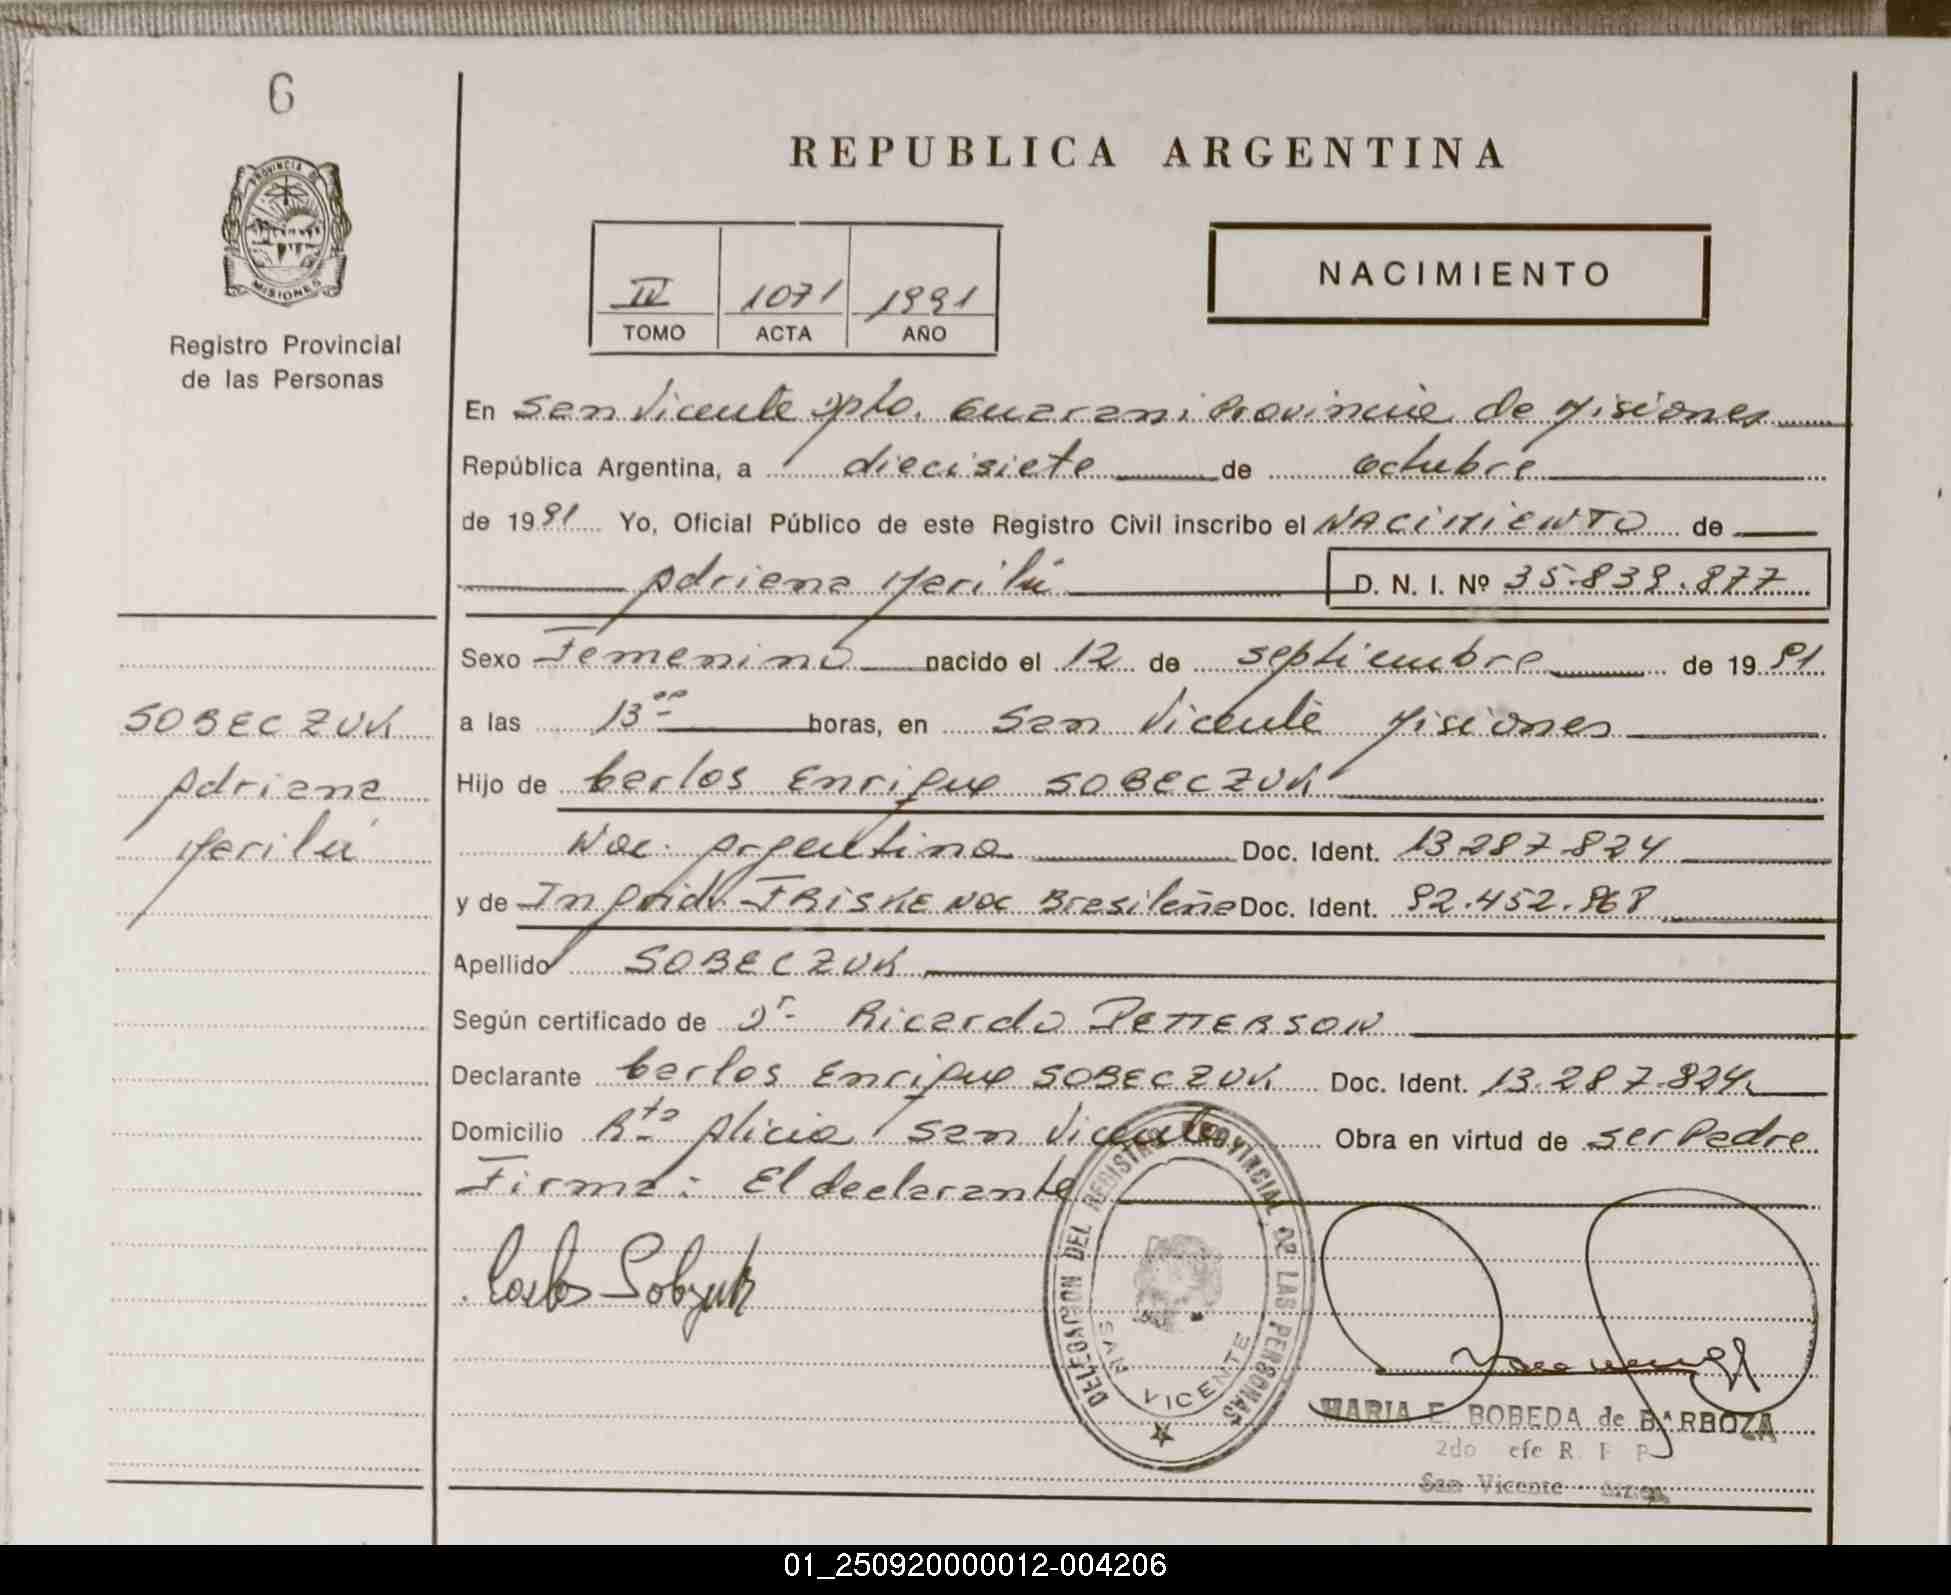 6
PROVINCIA DE
MISIONES
Registro Provincial
de las Personas
REPUBLICA ARGENTINA
IV 1071 1991
TOMO ACTA AÑO
NACIMIENTO
En San Vicente Dpto. Guarani Provincia de Misiones
República Argentina, a diecisiete de octubre
de 1991 Yo, Oficial Público de este Registro Civil inscribo el NACIMIENTO de
Adriana Marilú D. N. I. Nº 35.839.877
Sexo Femenino nacido el 12 de septiembre de 1991
a las 13 ºº horas, en San Vicente Misiones
Hijo de Carlos Enrique SOBECZUK
Nac. Argentina Doc. Ident. 13.287.824
y de Ingrid FRISKE Nac Brasileña Doc. Ident. 92.452.868
Apellido SOBECZUK
Según certificado de Dr- Ricardo PETTERSON
Declarante Carlos Enrique SOBECZUK Doc. Ident. 13.287.824
Domicilio Rta Alicia San Vicente Obra en virtud de ser Padre
Firma: El declarante
SOBECZUK
Adriana
Marilú
Carlos Sobczuk
DELEGACION DEL REGISTRO PROVINCIAL DE LAS PERSONAS
SAN VICENTE
MARIA E. BOBEDA de BARBOZA
2do efe R. P P
San Vicente
01_250920000012-004206